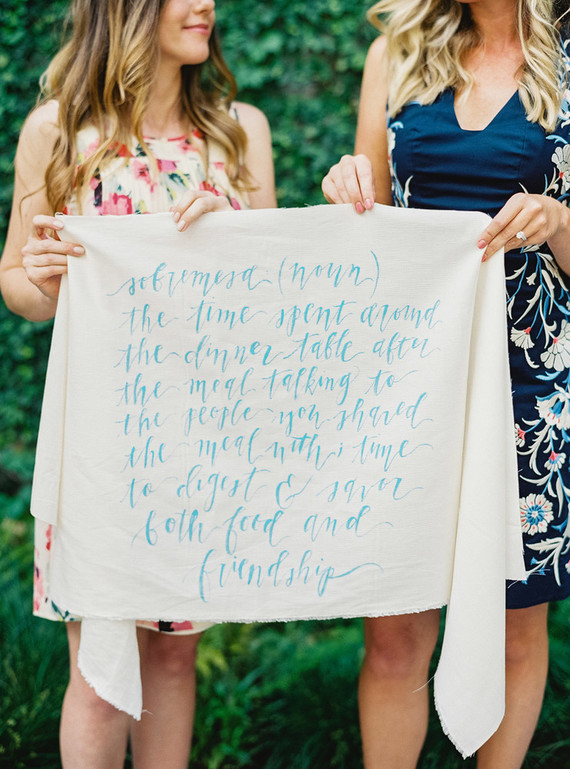 sobremesa (noun)
the time spent around
the dinner table after
the meal talking to
the people you shared
the meal with; time
to digest & savor
both food and
friendship